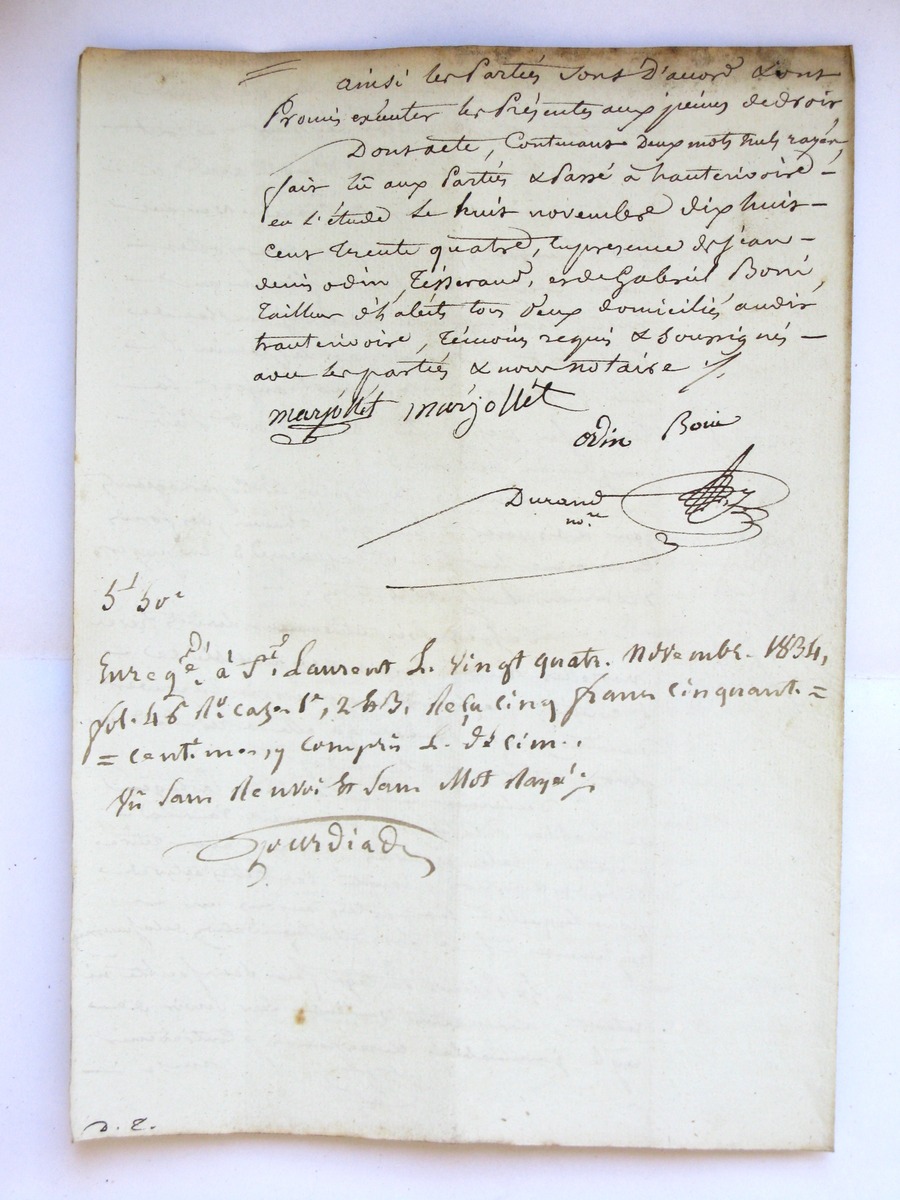 ainsi les Parties sont D'accord & ont
Promis exécuter les Présentes aux peines de droit,
Dont acte, Contenant Deux mots nuls rayés,
fait lû aux Parties & Passé à hauterivoire -
en l'étude le huit novembre dix huit -
cent trente quatre, en présence de jean -
denis odin, tisserand, et de Gabriel Boni
Tailleur d'habits tous deux domiciliés audit
hauterivoire, témoins requis & soussignés -
avec les parties & nous notaire ./.
marjollet marjollet
odin Boni
Durand
nore
5f 50c
Enregé à St. Laurent le vingt quatr. novembre 1834,
fol. 46 Ro. case 1re, 2 & 3. Reçu cinq francs cinquante =
= centimes, y compris le décime.
Vû sans Renvoi & sans Mot Rayé;
Gourdiad
D. E.